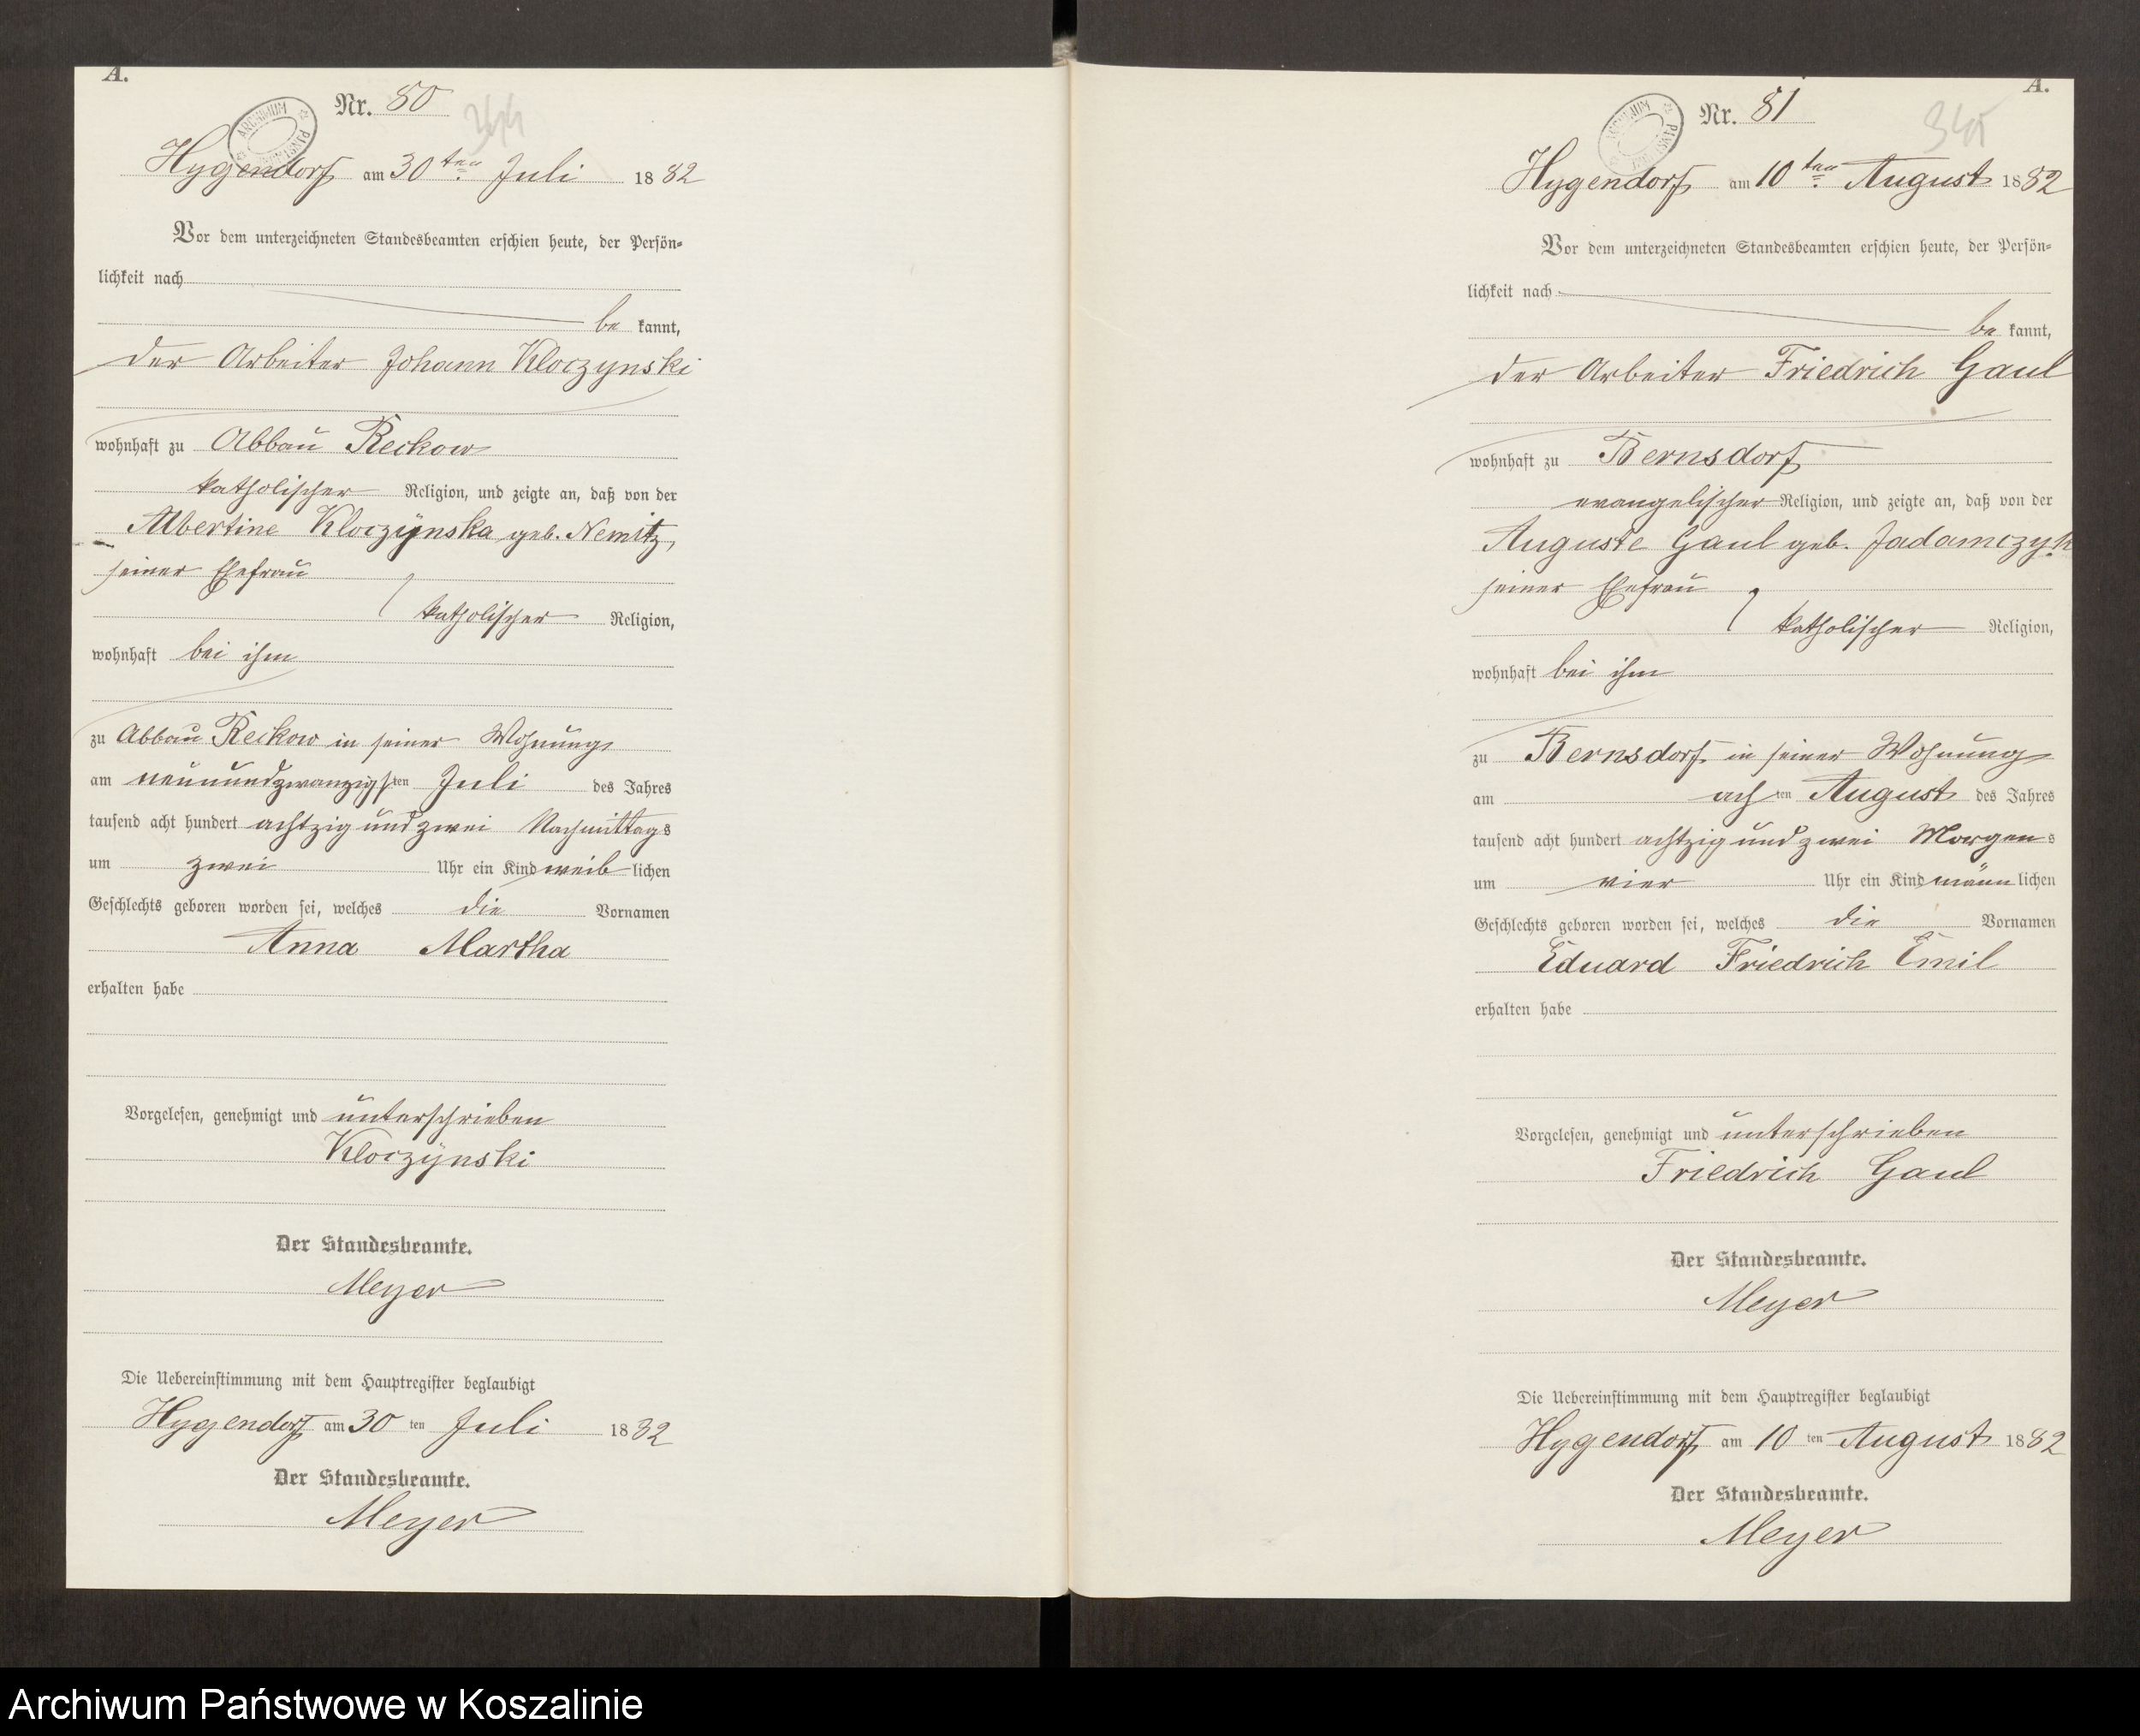 A.
Nr. 80
344
ARCHIWUM PAŃSTWOWE
Hygendorf am 30ten Juli 1882
Vor dem unterzeichneten Standesbeamten erschien heute, der Persön=
lichkeit nach
be kannt,
der Arbeiter Johann Kloczynski
wohnhaft zu Abbau Reckow
katholischer Religion, und zeigte an, daß von der
Albertine Kloczÿnska geb. Nemitz,
seiner Ehefrau
katholischer Religion,
wohnhaft bei ihm
zu Abbau Reckow in seiner Wohnung
am neunundzwanzigsten Juli des Jahres
tausend acht hundert achtzig und zwei Nachmittags
um zwei Uhr ein Kind weib lichen
Geschlechts geboren worden sei, welches die Vornamen
Anna Martha
erhalten habe
Vorgelesen, genehmigt und unterschrieben
Kloczÿnski
Der Standesbeamte.
Meyer
Die Uebereinstimmung mit dem Hauptregister beglaubigt
Hygendorf am 30 ten Juli 1882
Der Standesbeamte.
Meyer
A.
Nr. 81
345
ARCHIWUM PAŃSTWOWE
Hygendorf am 10ten August 1882
Vor dem unterzeichneten Standesbeamten erschien heute, der Persön=
lichkeit nach
be kannt,
der Arbeiter Friedrich Gaul
wohnhaft zu Bernsdorf
evangelischer Religion, und zeigte an, daß von der
Auguste Gaul geb. Jadamczyk
seiner Ehefrau
katholischer Religion,
wohnhaft bei ihm
zu Bernsdorf in seiner Wohnung
am ach ten August des Jahres
tausend acht hundert achtzig und zwei Morgens
um vier Uhr ein Kind männ lichen
Geschlechts geboren worden sei, welches die Vornamen
Eduard Friedrich Emil
erhalten habe
Vorgelesen, genehmigt und unterschrieben
Friedrich Gaul
Der Standesbeamte.
Meyer
Die Uebereinstimmung mit dem Hauptregister beglaubigt
Hygendorf am 10 ten August 1882
Der Standesbeamte.
Meyer
Archiwum Państwowe w Koszalinie